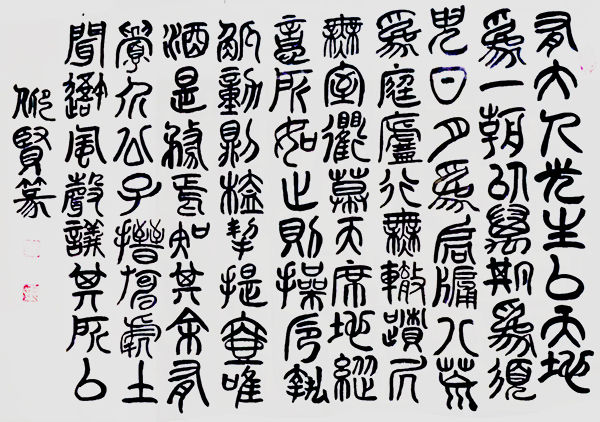 有大人先生以天地
爲一朝以萬期爲須
臾日月爲扃牖八荒
爲庭廬行無轍蹟凥
無室衢幕天席地縱
意所如止則操卮執
觚動則榼挈提壺唯
酒是務焉知其余有
介公子搢紳處士
聞風聲議其所以
賢篆